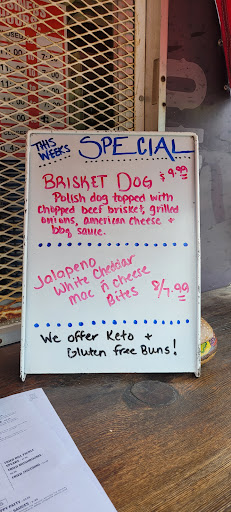 THIS
WEEKS SPECIAL
BRISKET DOG $9.99
Polish dog topped with
chopped beef brisket, grilled
onions, american cheese +
bbq sauce.
Jalapeno
White Cheddar
mac n cheese
Bites 8/7.99
We offer Keto +
Gluten free Buns!